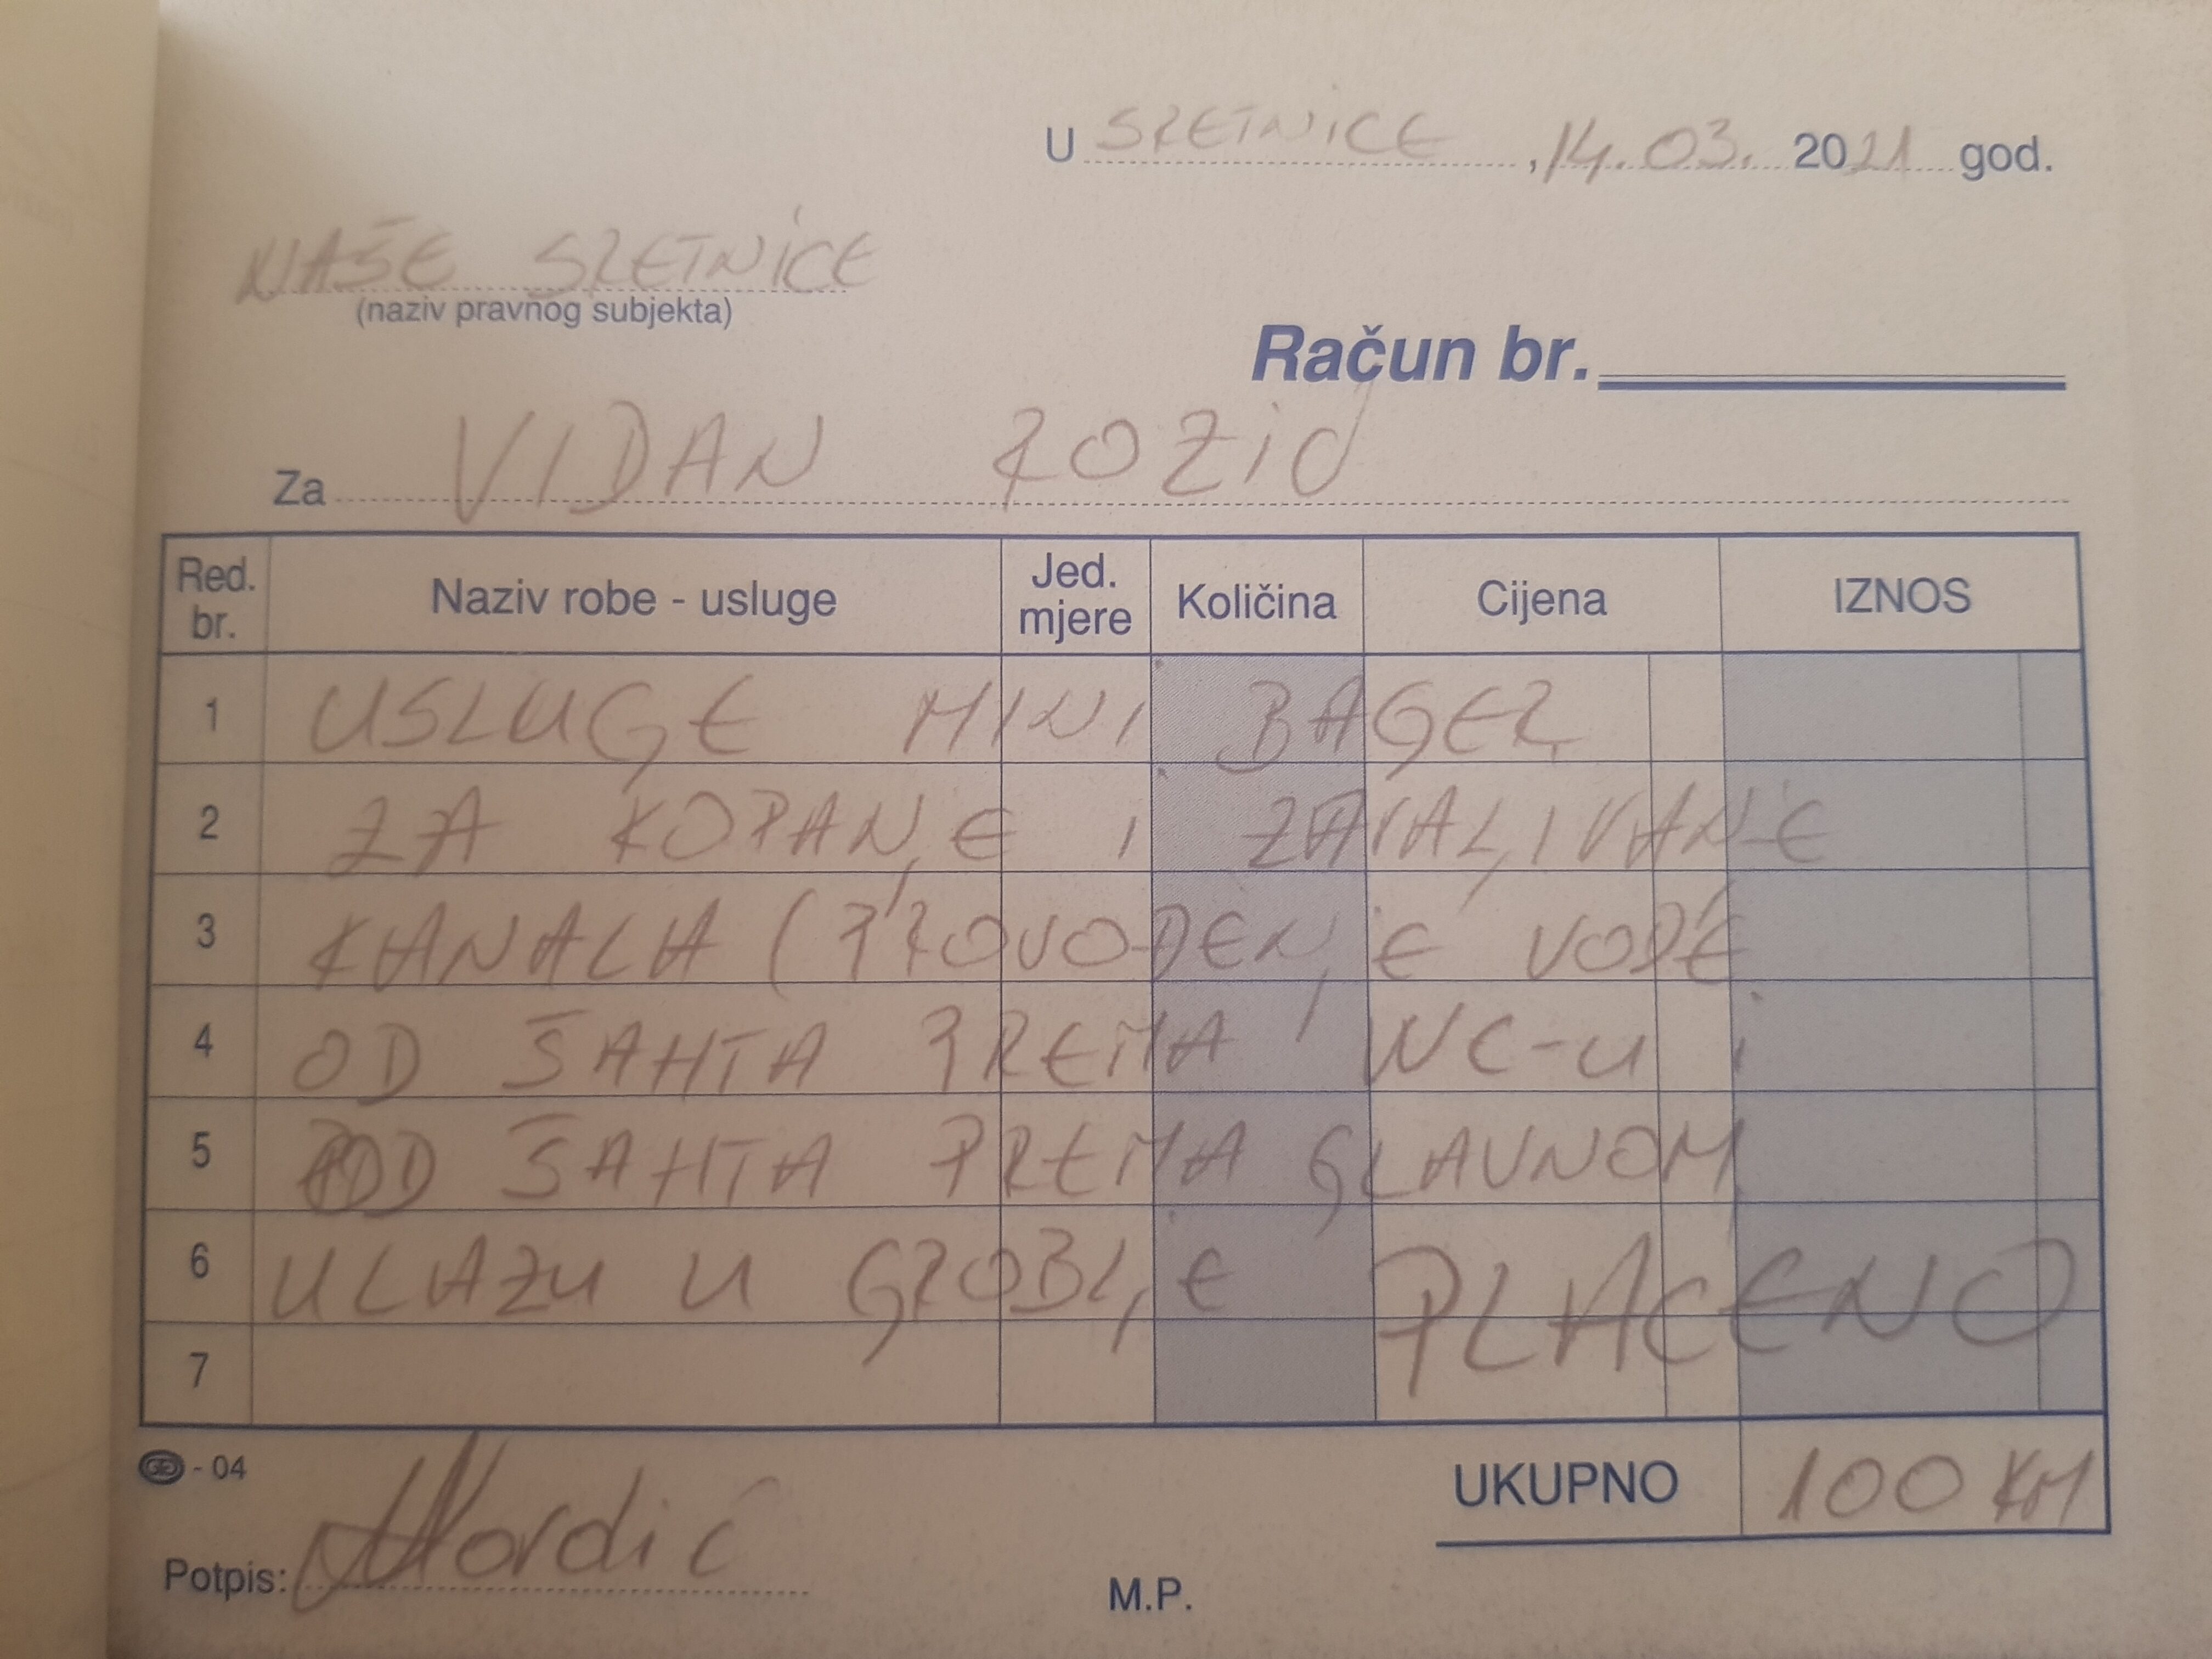 U SRETNICE, 14.03. 2021 god.
NAŠE SRETNICE
(naziv pravnog subjekta)
Račun br.
Za VIDAN ROZIĆ
Red. br. Naziv robe - usluge Jed. mjere Količina Cijena IZNOS
1 USLUGE MINI BAGER
2 ZA KOPANJE I ZATVALJIVANJE
3 KANALA (PROVOĐENJE VODE
4 OD ŠAHTA PREMA WC-u i
5 OD ŠAHTA PREMA GLAVNOM
6 ULAZU U GROBLJE PLAĆENO
7
- 04 UKUPNO 100 KM
Potpis: M.P.